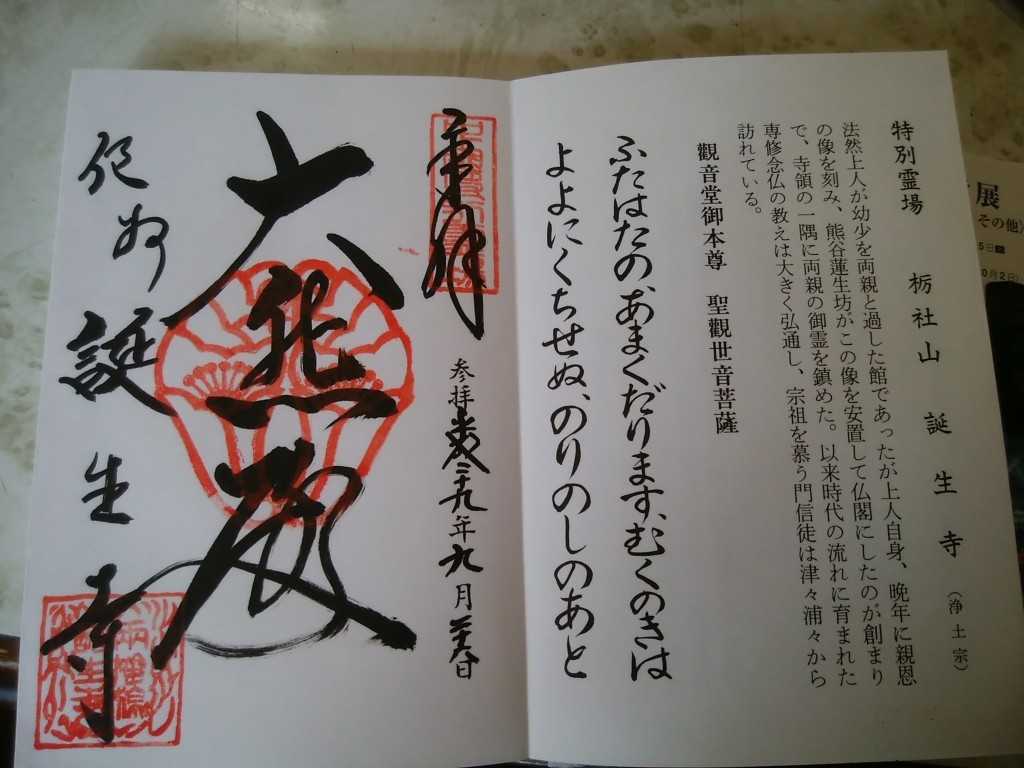 特別霊場 栃社山 誕生寺 (浄土宗)
法然上人が幼少を両親と過した館であったが上人自身、晩年に親恩
の像を刻み、熊谷蓮生坊がこの像を安置して仏閣にしたのが創まり
で、寺領の一隅に両親の御霊を鎮めた。以来時代の流れに育まれた
専修念仏の教えは大きく弘通し、宗祖を慕う門信徒は津々浦々から
訪れている。
觀音堂御本尊 聖觀世音菩薩
ふたはたの、あまくだります、むくのきは
よよにくちせぬ、のりのしのあと
奉拝
参拝 年九月 日
大悲殿
誕生寺
展
その他〉
5日
0月2日